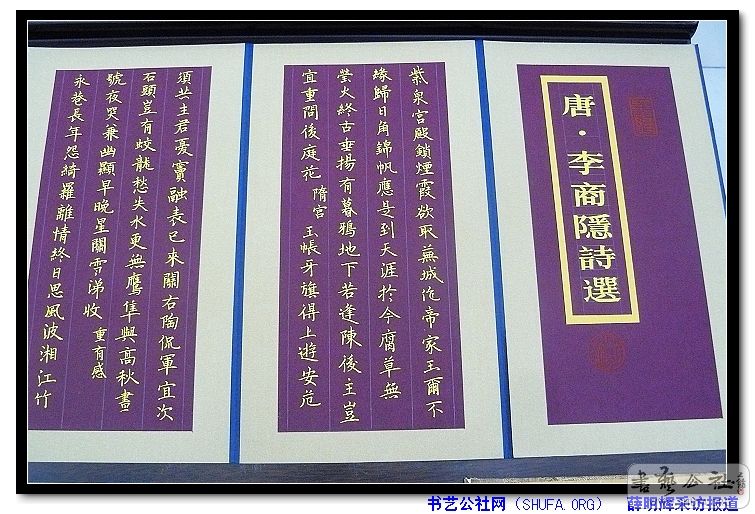 唐·李商隱詩選
紫泉宮殿鎖煙霞欲取蕪城作帝家王爾不
緣歸日角錦帆應是到天涯於今腐草無
螢火終古垂揚有暮鴉地下若逢陳後主豈
宜重問後庭花 隋宮 玉帳牙旗得上遊安危
須共主君憂竇融表已來關右陶侃軍宜次
石頭豈有蛟龍愁失水更無鷹隼與高秋晝
號夜哭兼幽顯早晚星關雪涕收 重有感
永巷長年怨綺羅離情終日思風波湘江竹
書藝公社
书艺公社网（SHUFA.ORG） 薛明辉采访报道